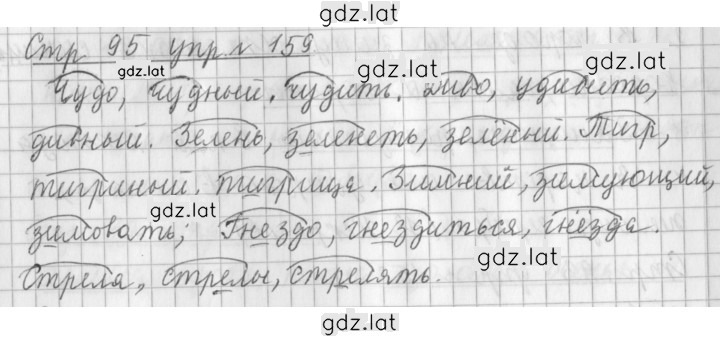 gdz.lat
Стр 95 упр № 159
gdz.lat gdz.lat
Чудо, чудный, чудить. диво, удивить,
дивный. Зелень, зеленеть, зелёный. Тигр,
тигриный. тигрица. Зимний, зимующий,
gdz.lat
зимовать; Гнездо, гнездиться, гнёзда.
gdz.lat
Стрела, стрелы, стрелять.
gdz.lat